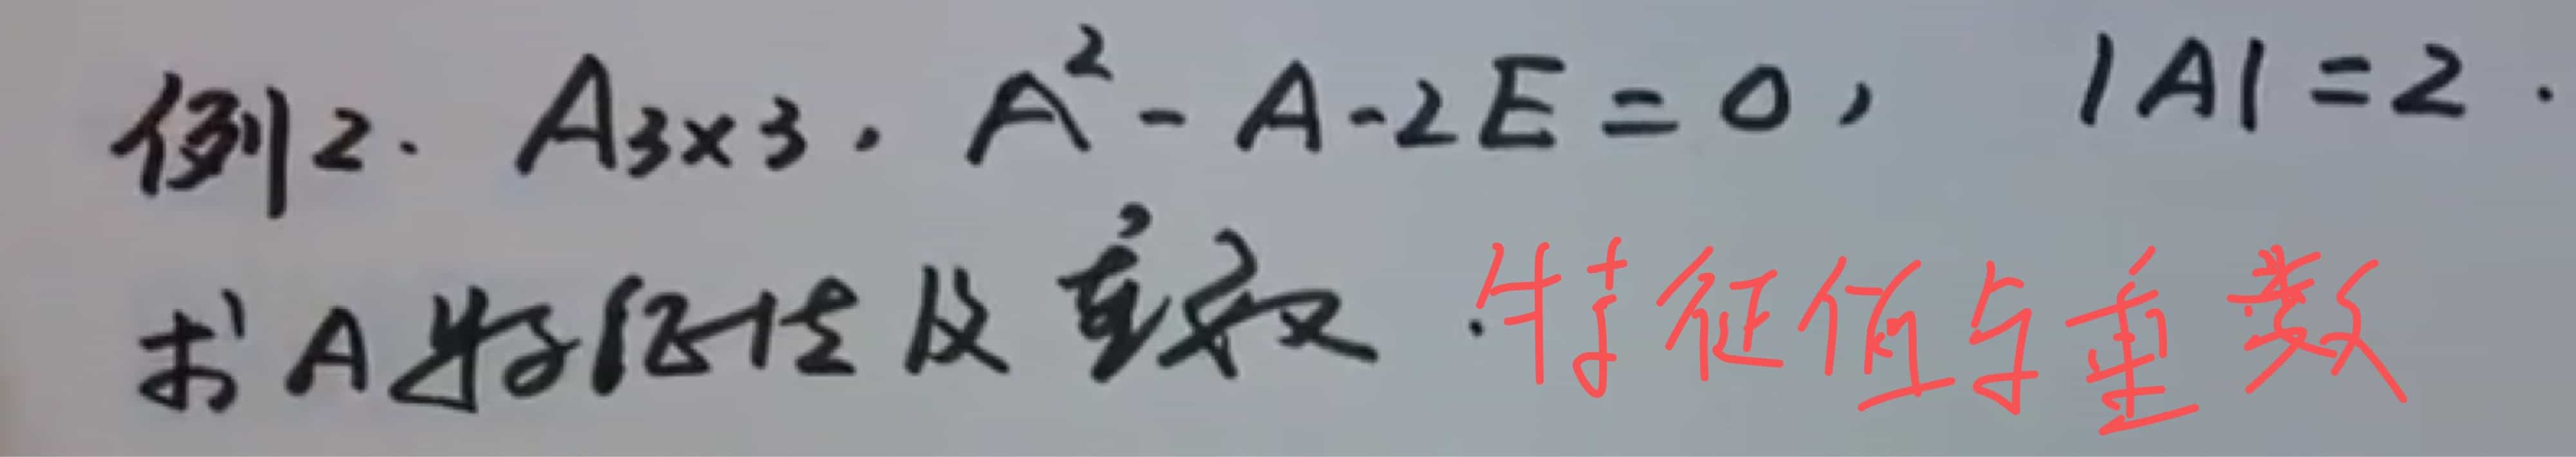 例2. A₃ₓ₃. A²-A-2E=0, |A|=2.
求A特征值及重数. 特征值与重数